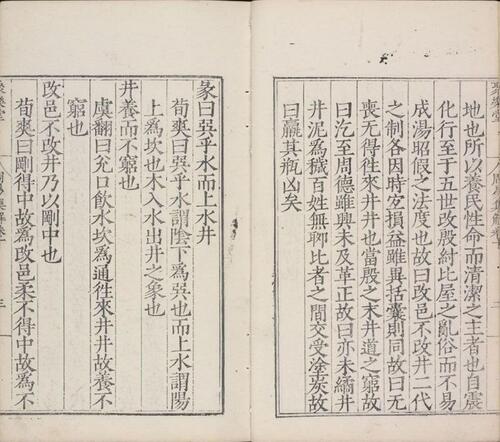 地也所以養民性命而清潔之主者也自震
化行至于五世改殷紂比屋之亂俗而不易
成湯昭假之法度也故曰改邑不改井二代
之制各因時宜損益雖異括囊則同故曰无
喪无得徃來井井也當殷之末井道之窮故
曰汔至周德雖興未及革正故曰亦未繘井
井泥爲穢百姓無聊比者之間交受塗炭故
曰羸其瓶凶矣
彖曰巽乎水而上水井
荀爽曰巽乎水謂陰下爲巽也而上水謂陽
上爲坎也木入水出井之象也
井養而不窮也
虞翻曰兊口飲水坎爲通徃來井井故養不
窮也
改邑不改井乃以剛中也
荀爽曰剛得中故爲改邑柔不得中故爲不